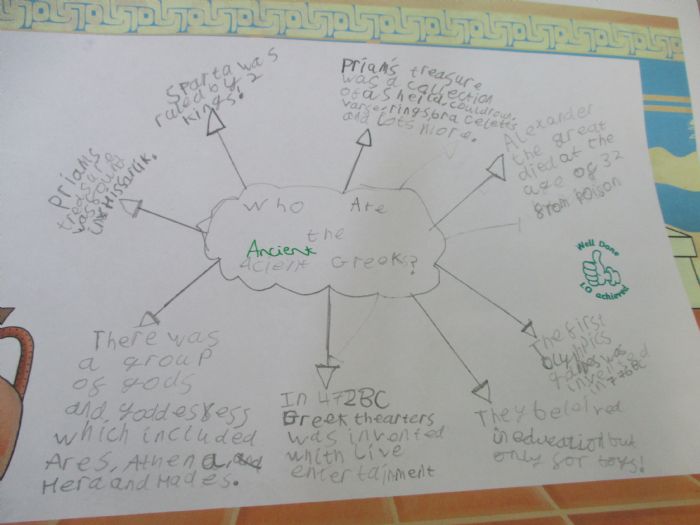 Who Are
the
Ancient
Acient Greek?
Sparta was
ruled by 2
kings!
Priam's treasure
was a collection
of a sheild, couldrou,
varse, rings, bra celetts
and lots more.
Alexander
the great
died at the
age of 32
from poison
Well Done
L.O achieved
The first
Olympics
games was
invented
in 776BC
They beloived
in education but
only for boys!
In 472BC
Greek thearters
was invented
which live
entertainment
There was
a group
of gods
and goddessess
which included
Ares, Athena, and
Hera and Hades.
Priam's
treasure
was found
in Hissarlik.